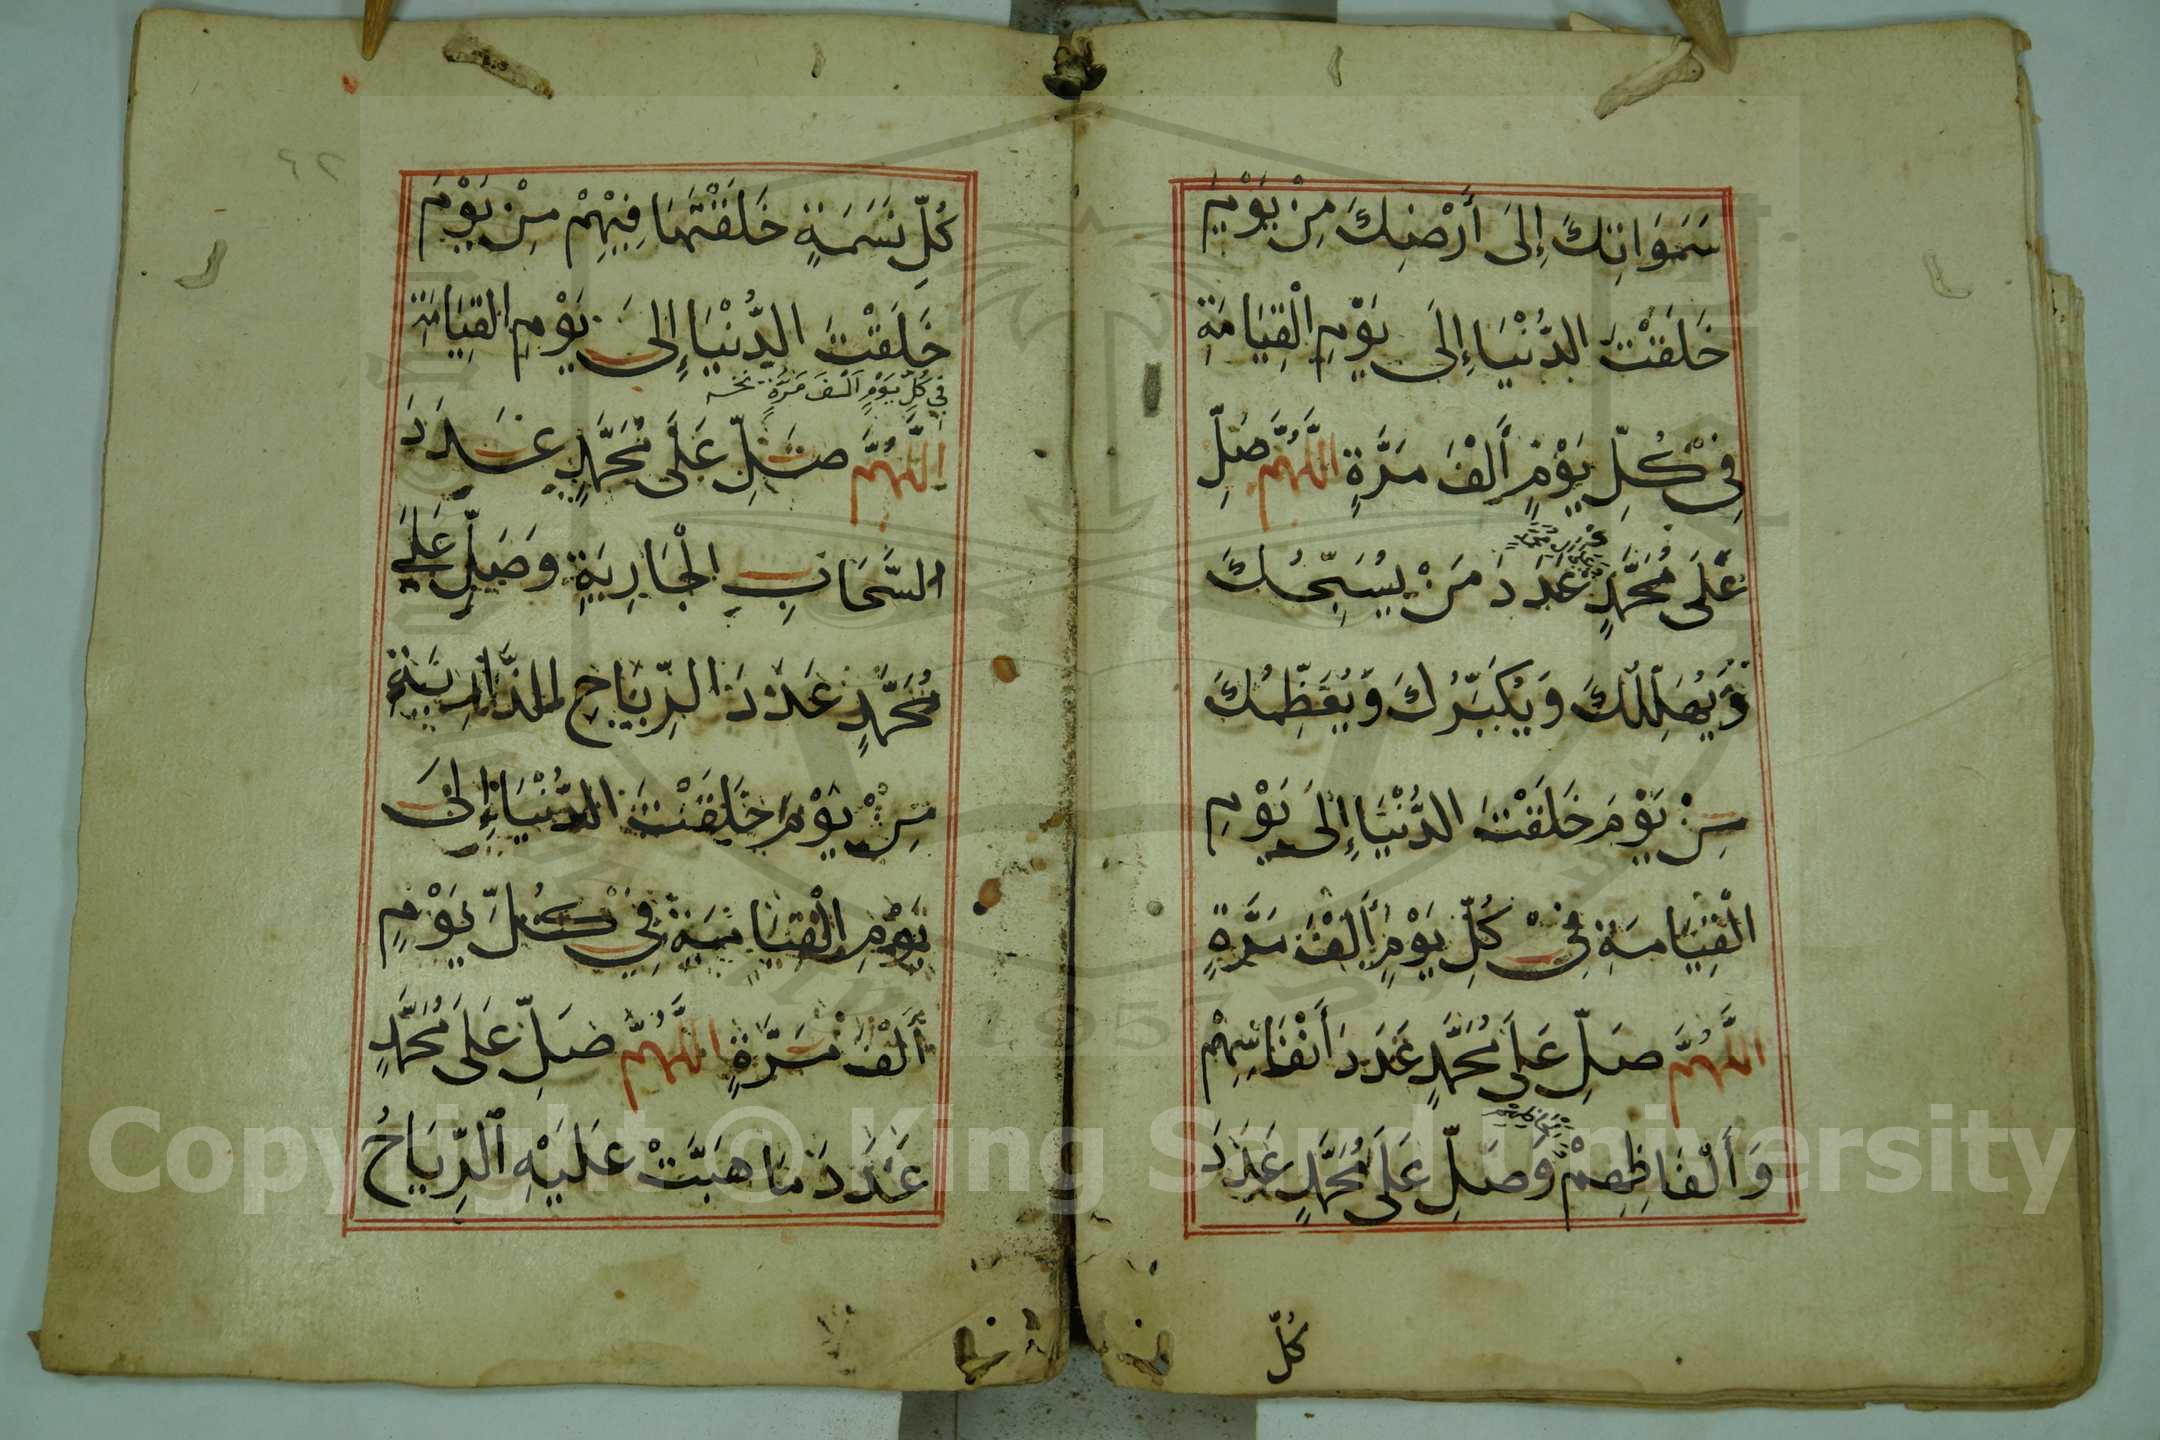 سَمَوَاتِكَ إِلَى أَرْضِكَ مِنْ يَوْمِ
خَلَقْتَ الدُّنْيَا إِلَى يَوْمِ الْقِيَامَةِ
فِيْ كُلِّ يَوْمٍ أَلْفَ مَرَّةٍ اللَّهُمَّ صَلِّ
عَلَى مُحَمَّدٍ عَدَدَ مَنْ يُسَبِّحُكَ
وَيُهَلِّلُكَ وَيُكَبِّرُكَ وَيُعَظِّمُكَ
مِنْ يَوْمَ خَلَقْتَ الدُّنْيَا إِلَى يَوْمِ
الْقِيَامَةِ فِيْ كُلِّ يَوْمٍ أَلْفَ مَرَّةٍ
اللَّهُمَّ صَلِّ عَلَى مُحَمَّدٍ عَدَدَ أَنْفَاسِهِمْ
وَأَلْفَاظِهِمْ وَصَلِّ عَلَى مُحَمَّدٍ عَدَدَ
كُلِّ
٦٢
كُلِّ نَسَمَةٍ خَلَقْتَهَا فِيْهِمْ مِنْ يَوْمَ
خَلَقْتَ الدُّنْيَا إِلَى يَوْمِ الْقِيَامَةِ
فِي كُلِّ يَوْمٍ أَلْفَ مَرَّةٍ نسخه
اللَّهُمَّ صَلِّ عَلَى مُحَمَّدٍ عَدَدَ
السَّحَابِ الْجَارِيَةِ وَصَلِّ عَلَى
مُحَمَّدٍ عَدَدَ الرِّيَاحِ الذَّارِيَةِ
مِنْ يَوْمَ خَلَقْتَ الدُّنْيَا إِلَى
يَوْمِ الْقِيَامَةِ فِيْ كُلِّ يَوْمٍ
أَلْفَ مَرَّةٍ اللَّهُمَّ صَلِّ عَلَى مُحَمَّدٍ
عَدَدَ مَا هَبَّتْ عَلَيْهِ الرِّيَاحُ
Copyright © King Saud University
1957